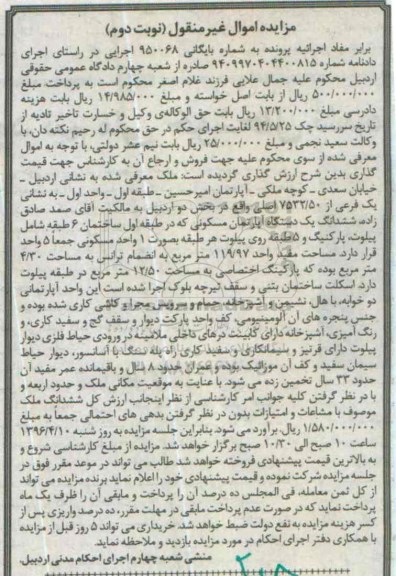 مزایده اموال غیر منقول (نوبت دوم)
برابر مفاد اجرائیه پرونده به شماره بایگانی ۹۵۰۰۶۸ اجرایی در راستای اجرای
دادنامه شماره ۹۴۰۹۹۷۰۴۰۴۴۰۰۸۱۵ صادره از شعبه چهارم دادگاه عمومی حقوقی
اردبیل محکوم علیه جمال علایی فرزند غلام اصغر محکوم است به پرداخت مبلغ
۵۰۰/۰۰۰/۰۰۰ ریال از بابت اصل خواسته و مبلغ ۱۴/۹۸۵/۰۰۰ ریال بابت هزینه
دادرسی مبلغ ۱۳/۲۰۰/۰۰۰ ریال بابت حق الوکاله‌ی وکیل و خسارت تاخیر تادیه از
تاریخ سررسید چک ۹۴/۵/۲۵ لغایت اجرای حکم در حق محکوم له رحیم نکته دان، با
وکالت سعید نجمی و مبلغ ۲۵/۰۰۰/۰۰۰ ریال بابت نیم عشر دولتی، با توجه به اموال
معرفی شده از سوی محکوم علیه جهت فروش و ارجاع آن به کارشناس جهت قیمت
گذاری بدین شرح ارزش گذاری گردیده است: ملک معرفی شده به نشانی اردبیل -
خیابان سعدی - کوچه ملکی - آپارتمان امیرحسین - طبقه اول - واحد اول - به نشانی
یک فرعی از ۷۵۳۲/۵۰ اصلی واقع در بخش دو اردبیل به مالکیت آقای صمد صادق
زاده، ششدانگ یک دستگاه آپارتمان مسکونی که در طبقه اول ساختمان ۶ طبقه شامل
پیلوت، پارکینگ و ۵ طبقه روی پیلوت هر طبقه بصورت ۱ واحد مسکونی جمعا ۵ واحد
قرار دارد. مساحت مفید واحد ۱۱۹/۹۷ متر مربع به انضمام تراس به مساحت ۴/۳۰
متر مربع بوده که پارکینگ اختصاصی به مساحت ۱۲/۵۰ متر مربع در طبقه پیلوت
دارد. اسکلت ساختمان بتنی و سقف تیرچه بلوک اجرا شده است این واحد آپارتمانی
دو خوابه، با هال، نشیمن و آشپزخانه، حمام و سرویس مجزا و کاشی کاری شده بوده و
جنس پنجره های آن آلومینیومی، کف واحد پارکت دیوار و سقف گچ و سفید کاری، و
رنگ آمیزی، آشپزخانه دارای کابینت درهای داخلی ملامینه در ورودی حیاط فلزی دیوار
پیلوت دارای قرنیز و سیمانکاری و سفید کاری راه پله سنگ با آسانسور، دیوار حیاط
سیمان سفید و کف آن موزائیک بوده و عمران حدود ۸ سال و باقیمانده عمر مفید آن
حدود ۳۳ سال تخمین زده می شود. با عنایت به موقعیت مکانی ملک و حدود اربعه و
با در نظر گرفتن کلیه جوانب امر کارشناسی از نظر اینجانب ارزش کل ششدانگ ملک
موصوف با مشاعات و امتیازات بدون در نظر گرفتن بدهی های احتمالی جمعا به مبلغ
۱/۵۸۰/۰۰۰/۰۰۰ ریال برآورد می شود. بنابراین جلسه مزایده به روز شنبه ۱۳۹۶/۴/۱۰
ساعت ۱۰ صبح الی ۱۰/۳۰ صبح برگزار خواهد شد. مزایده از مبلغ کارشناسی شروع و
به بالاترین قیمت پیشنهادی فروخته خواهد شد طالب می تواند در موعد مقرر فوق در
جلسه مزایده شرکت نموده و قیمت پیشنهادی خود را اعلام نماید برنده مزایده می تواند
از کل ثمن معامله، فی المجلس ده درصد آن را پرداخت و مابقی آن را ظرف یک ماه
پرداخت نماید که در صورت عدم پرداخت مابقی در مهلت مقرر، ده درصد واریزی پس از
کسر هزینه مزایده به نفع دولت ضبط خواهد شد. خریداری می تواند ۵ روز قبل از مزایده
با همکاری دفتر اجرای احکام در مورد مزایده بازدید و ملاحظه نماید.
منشی شعبه چهارم اجرای احکام مدنی اردبیل.